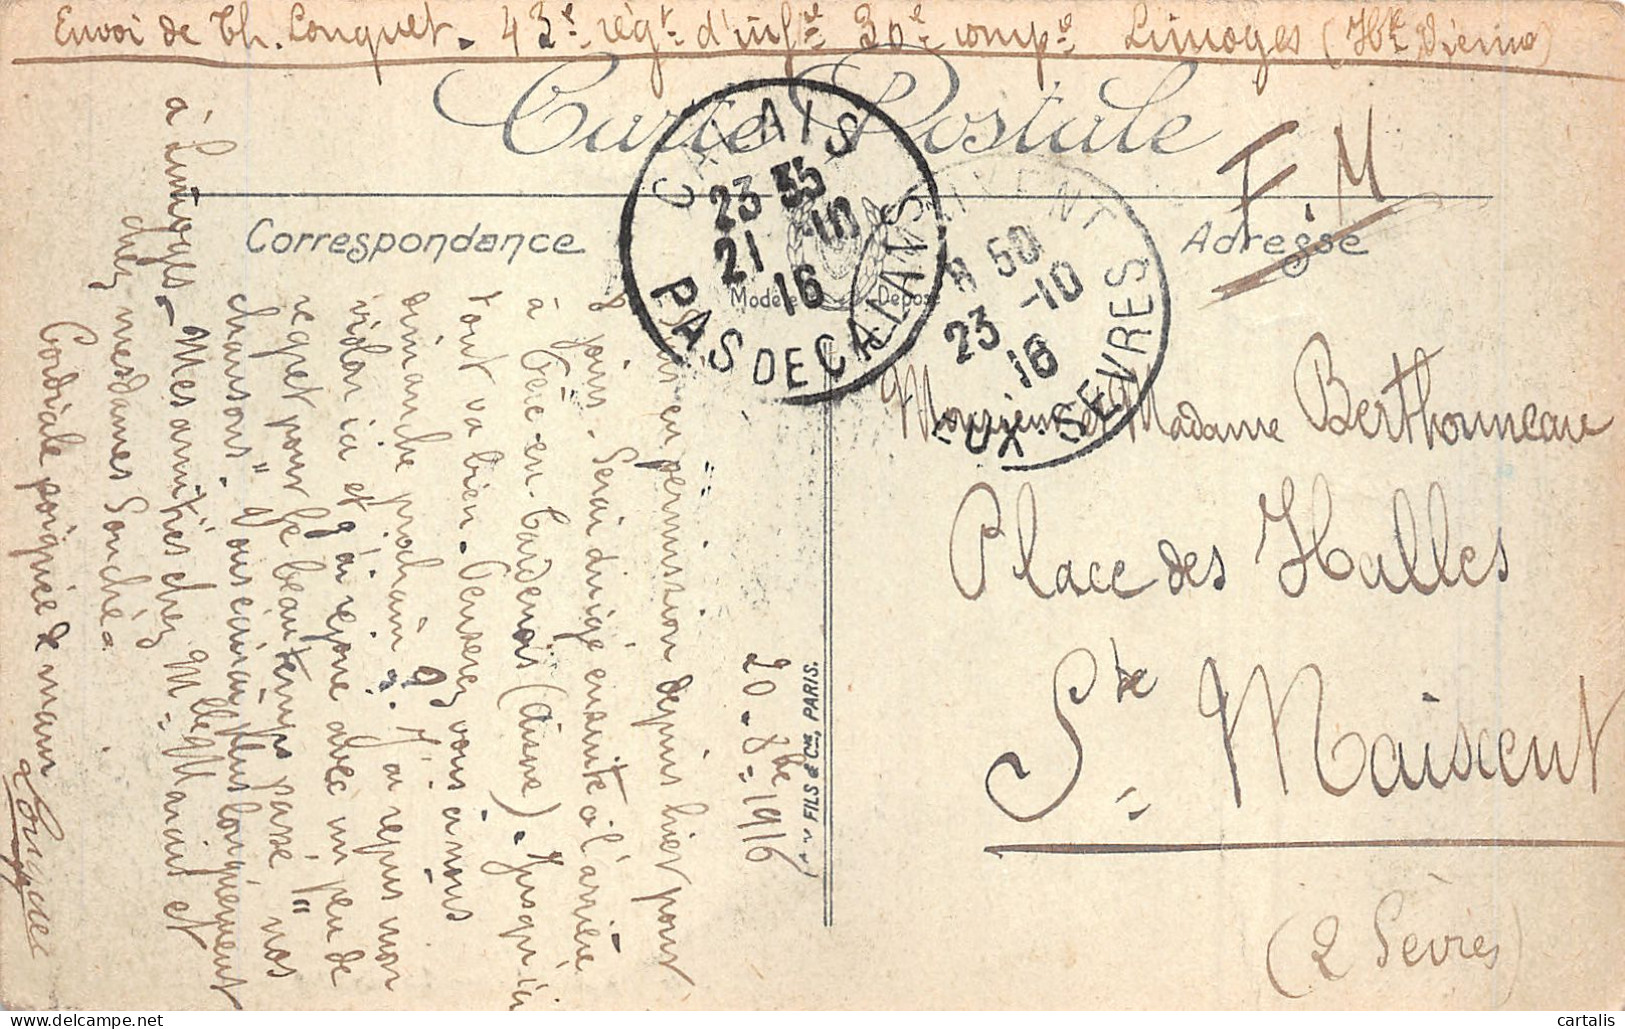 Envoi de Th. Longuet - 43e régt d'infie 30e compie Limoges (Hte Vienne)
Carte Postale
F.M
Correspondance
Adresse
Modèle Déposé
CALAIS
23-35
21 -10
16
PAS DE CALAIS
8 50
23 -10
16
SEVRES
20-8bre 1916
en permission depuis hier pour
8 jours. Serai dirigé ensuite à l'arrière
à Fère-en-Tardenois (Aisne). Jusqu'ici
tout va bien. Penserez-vous à nous
dimanche prochain ? J'ai repris mon
violon ici et j'ai rejoué avec un peu de
regret pour le beau temps passé "nos
chansons". Vous écrirai plus longuement
à Limoges - Mes amitiés chez Mlle Marius et
chez mesdames Souché.
Cordiale poignée de main
Longuet
Monsieur et Madame Berthonneau
Place des Halles
St Maixent
(2 Sèvres)
FILS & Cie, PARIS.
cartalis